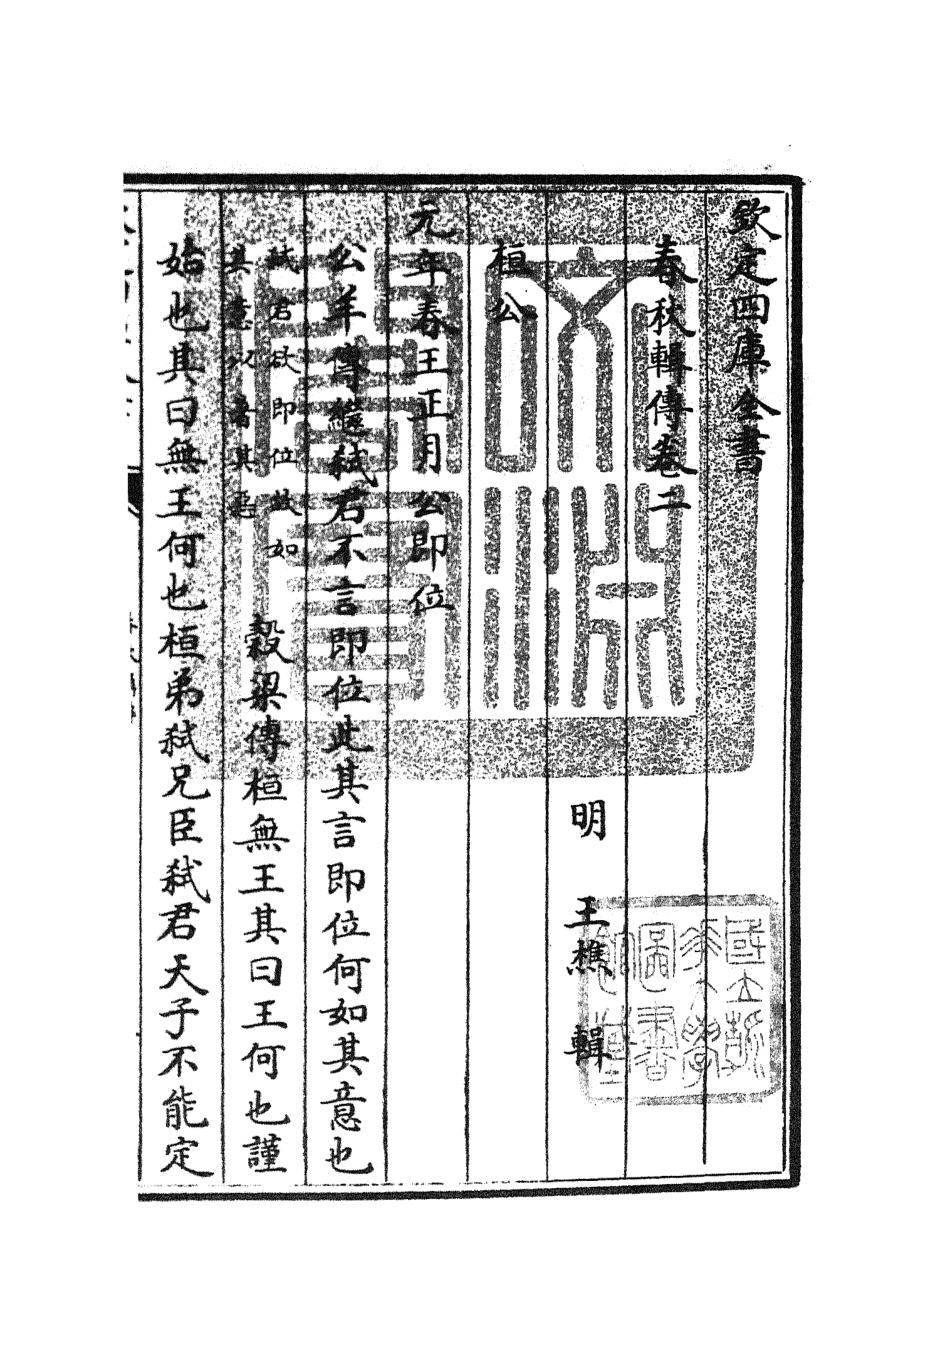 欽定四庫全書
春秋輯傳卷二
明 王樵 輯
桓公
元年春王正月公即位
公羊傳繼弑君不言即位此其言即位何如其意也
弑君欲即位故如
其意以著其惡
穀梁傳桓無王其曰王何也謹
始也其曰無王何也桓弟弑兄臣弑君天子不能定
國立
華大學
圖書